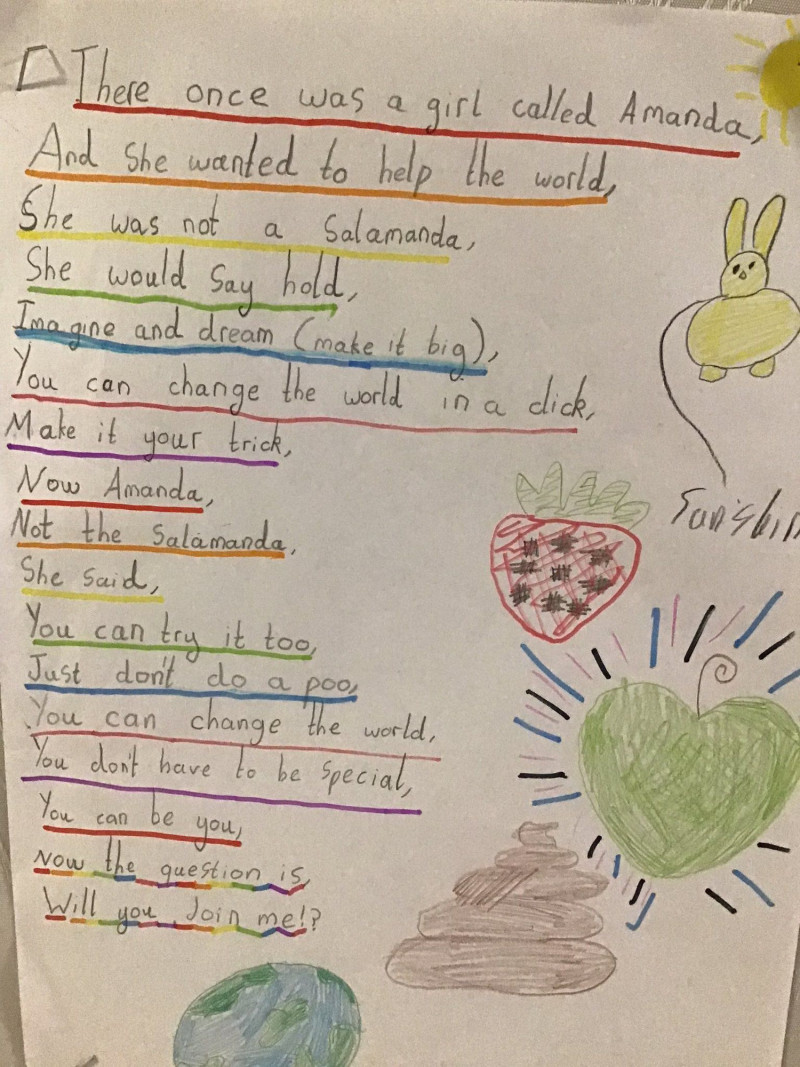 There once was a girl called Amanda,
And she wanted to help the world,
She was not a Salamanda,
She would say hold,
Imagine and dream (make it big),
You can change the world in a click,
Make it your trick,
Now Amanda,
Not the Salamanda,
She said,
You can try it too,
Just don't do a poo,
You can change the world,
You don't have to be special,
You can be you,
Now the question is,
Will you Join me!?